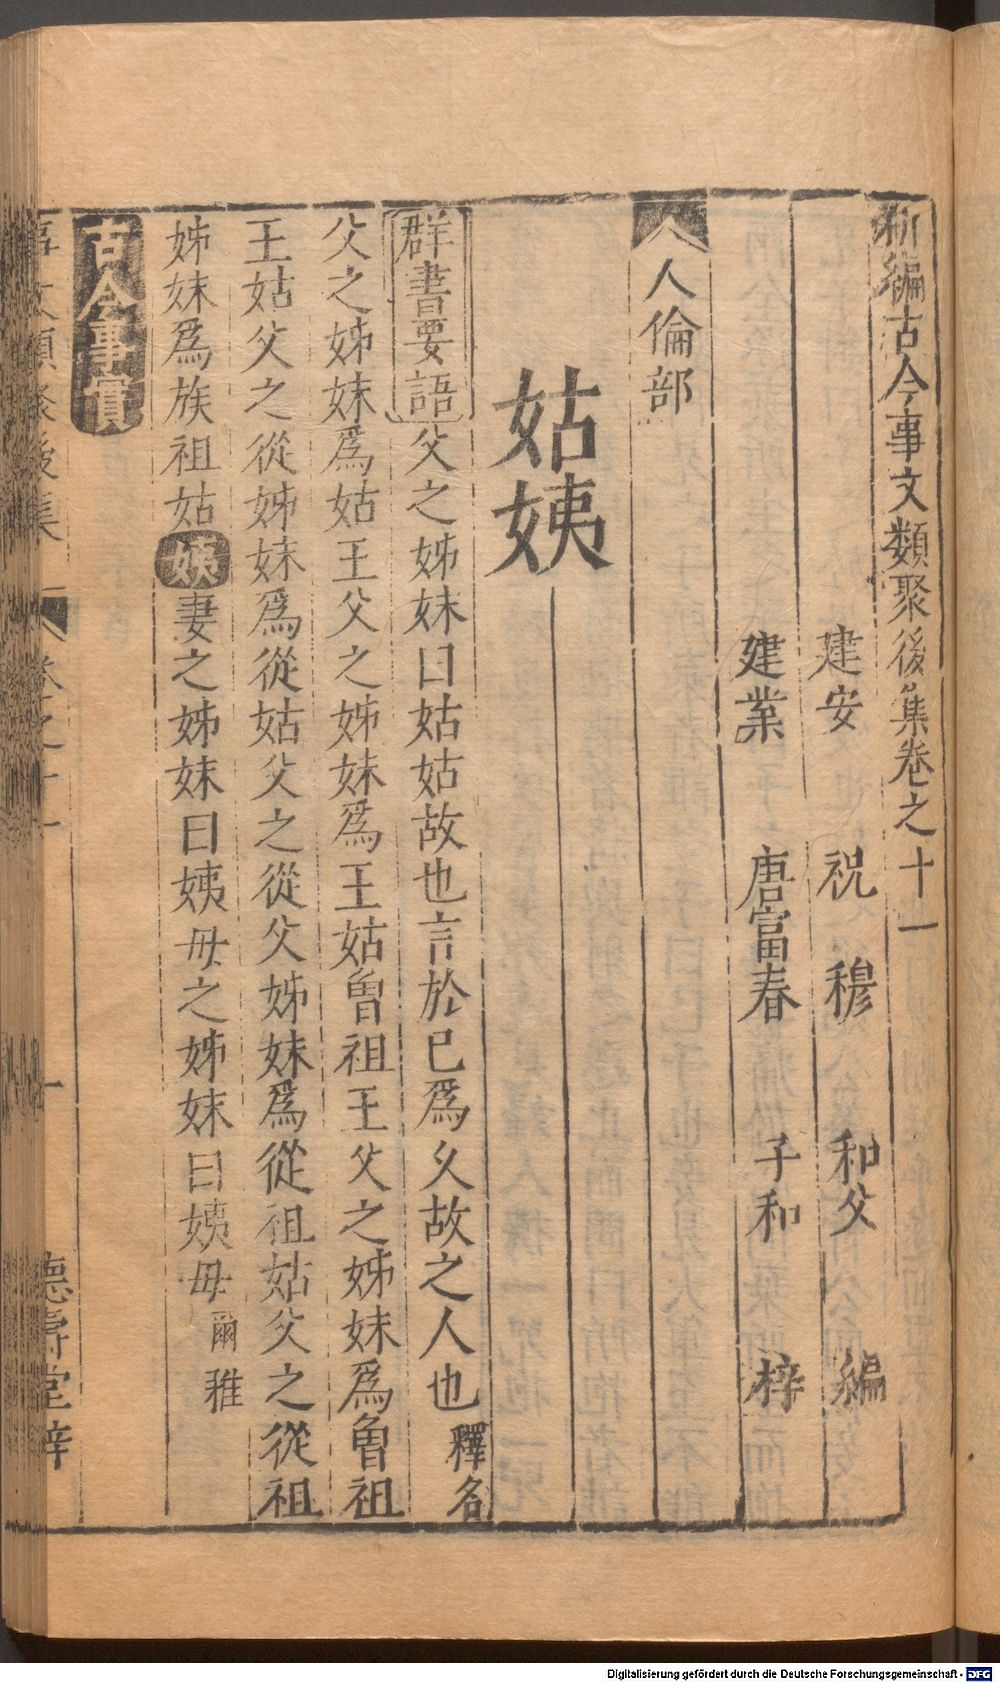 新編古今事文類聚後集卷之十一
建安 祝 穆 和父 編
建業 唐富春 子和 梓
人倫部
姑姨
群書要語父之姊妹曰姑姑故也言於已爲久故之人也釋名
父之姊妹爲姑王父之姊妹爲王姑曾祖王父之姊妹爲曾祖
王姑父之從姊妹爲從姑父之從父姊妹爲從祖姑父之從祖
姊妹爲族祖姑姨妻之姊妹曰姨母之姊妹曰姨母爾雅
古今事實
事文類聚後集 卷之十一 一 德壽堂梓
Digitalisierung gefördert durch die Deutsche Forschungsgemeinschaft - DFG